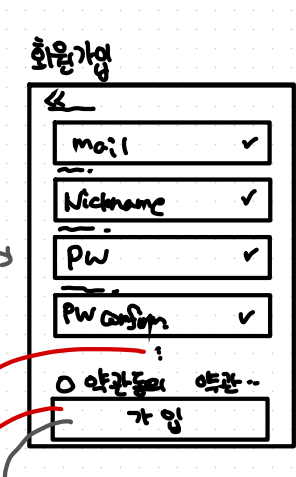 회원가입
<<
mail ✓
Nickname ✓
PW ✓
PW confirm ✓
약관동의 약관..
가입